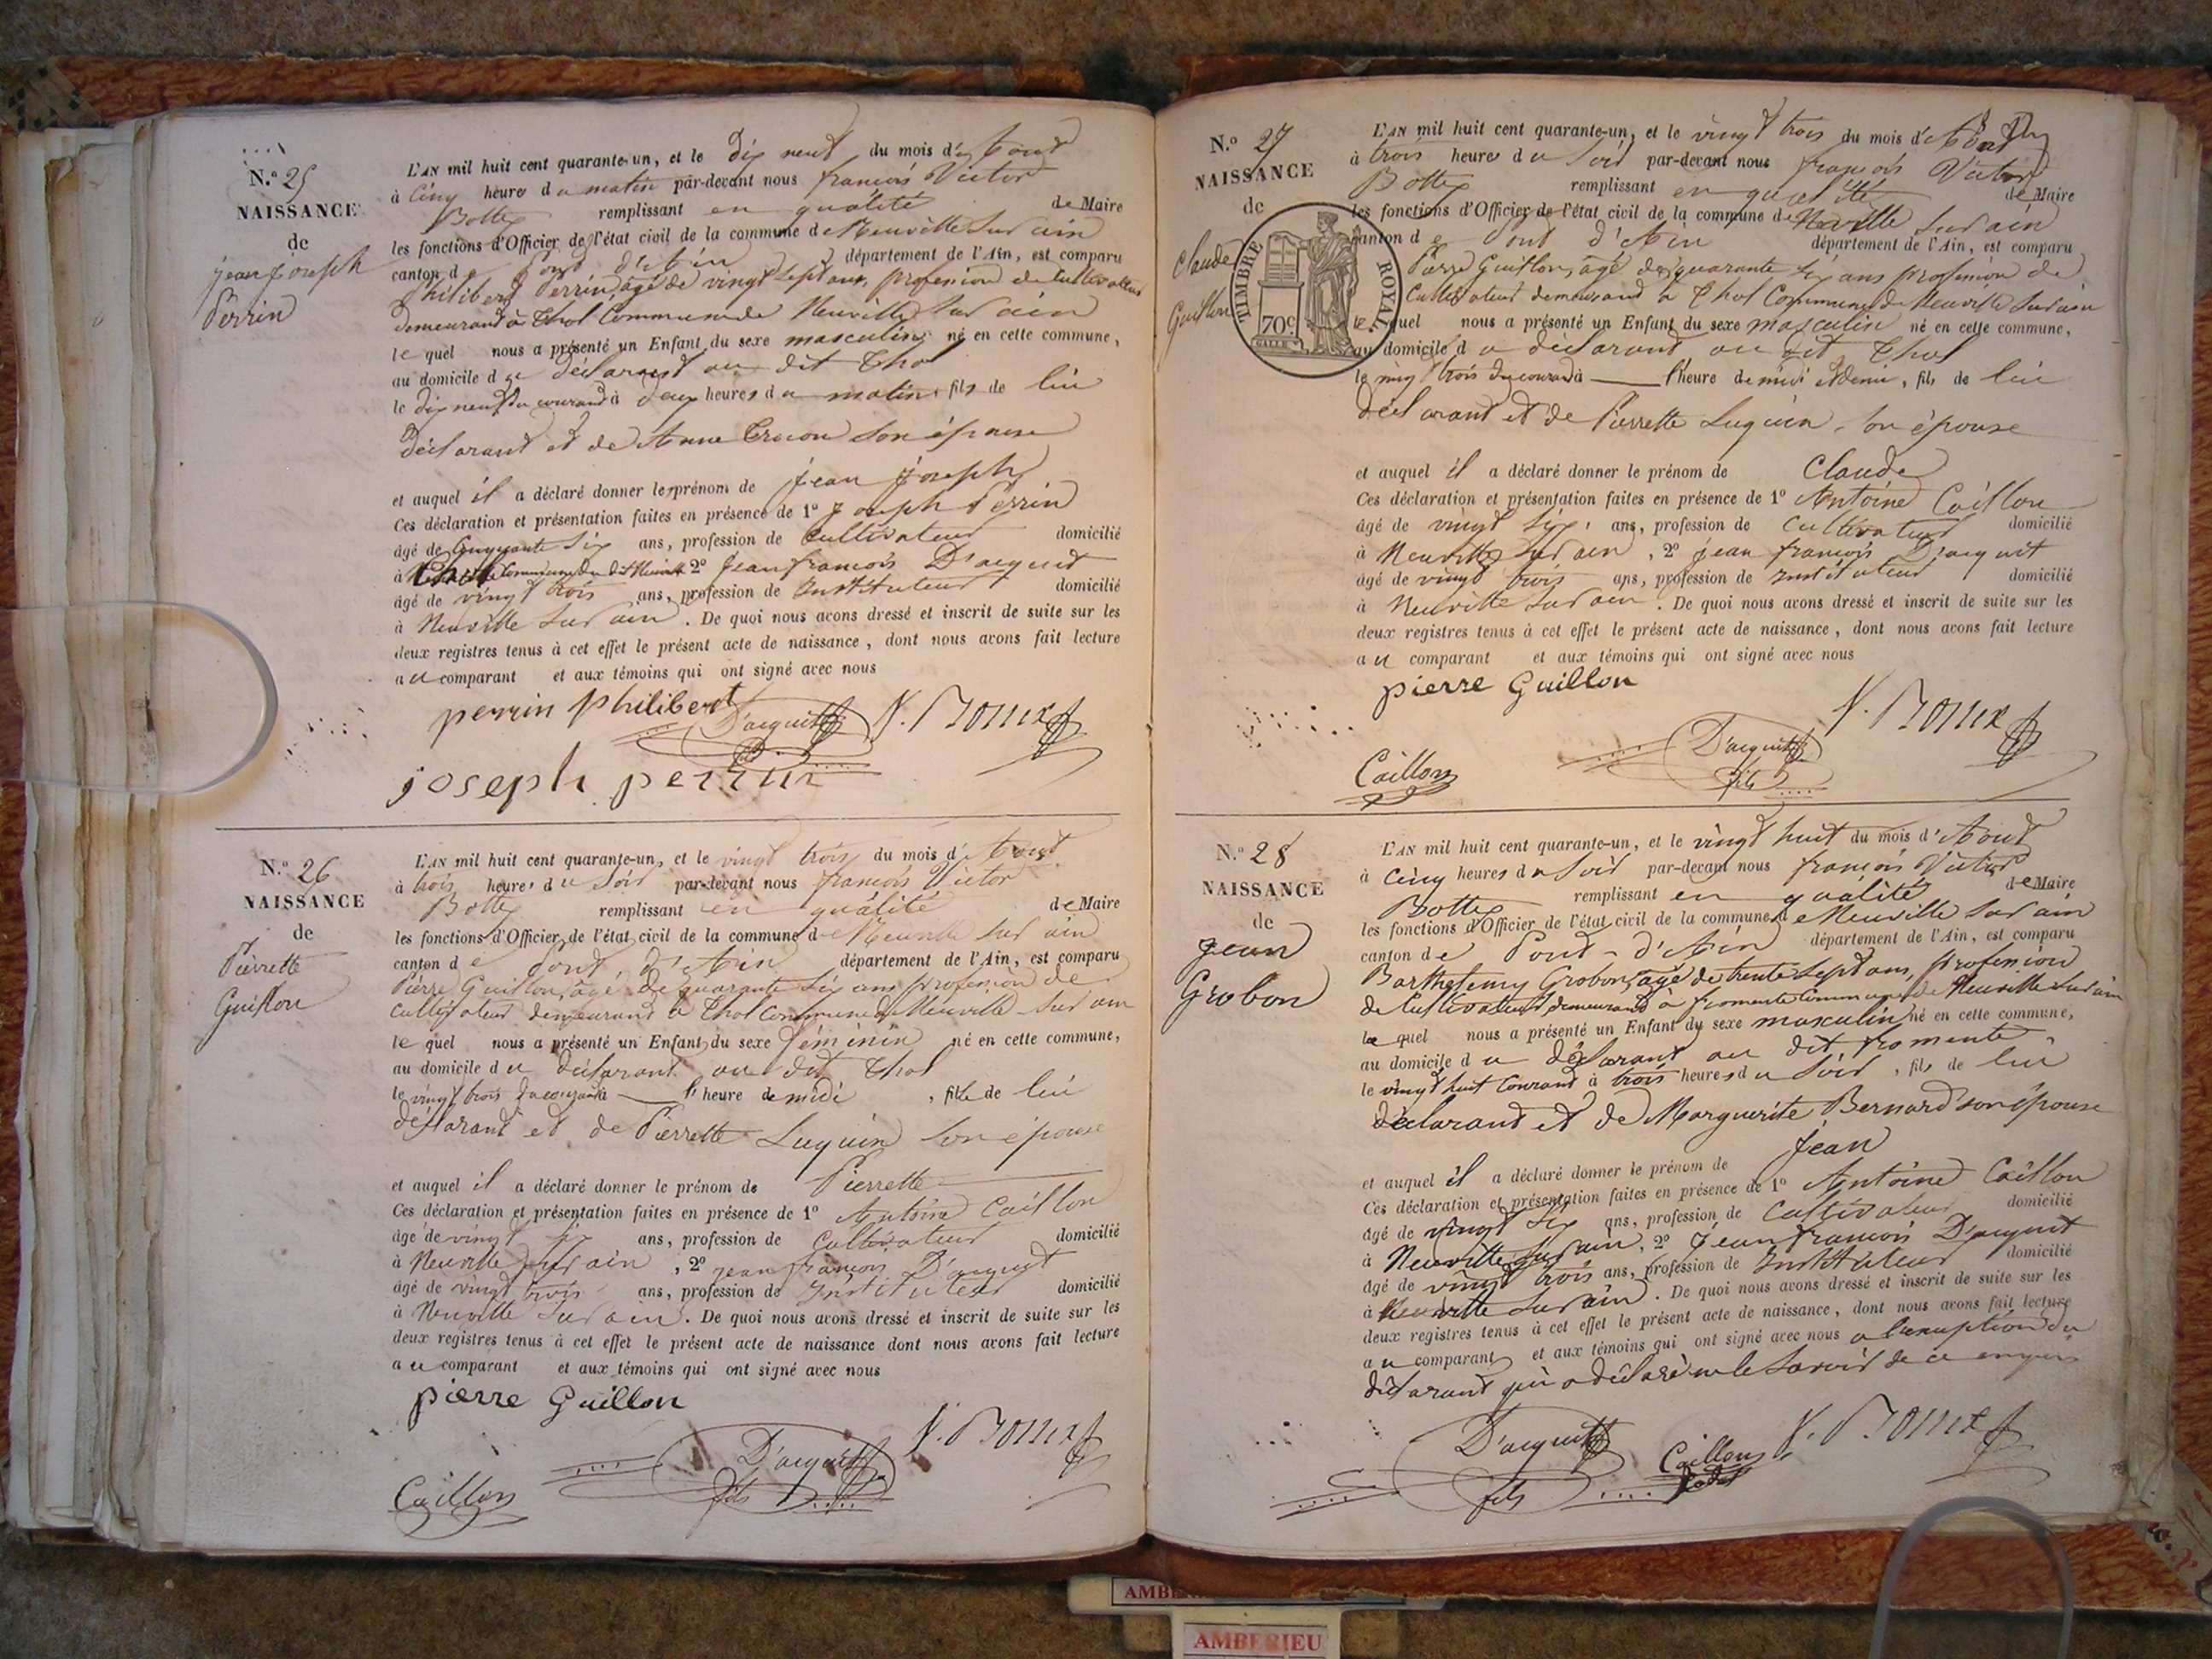 N.° 25
NAISSANCE
de
jean joseph
Perrin
L'AN mil huit cent quarante-un, et le dix neuf du mois d'Aout
à Cinq heures du matin par-devant nous françois Victor
Bottex remplissant en qualité de Maire
les fonctions d'Officier de l'état civil de la commune de Neuville Sur ain
canton de Pont d'Ain département de l'Ain, est comparu
Philibert Perrin agé de vingt Sept ans, profession de Cultivateur
demeurant à Thol Commune de Neuville Sur ain
le quel nous a présenté un Enfant du sexe masculin né en cette commune,
au domicile du déclarant au dit Thol
le dix neuf du courant à deux heures du matin, fils de lui
déclarant et de Anne Son épouse
et auquel il a déclaré donner le prénom de jean joseph
Ces déclaration et présentation faites en présence de 1° Joseph Perrin
âgé de Cinquante Six ans, profession de Cultivateur domicilié
à Thol Commune du dit Neuville 2° Jean françois D'acquit
âgé de vingt trois ans, profession de Instituteur domicilié
à Neuville Sur ain. De quoi nous avons dressé et inscrit de suite sur les
deux registres tenus à cet effet le présent acte de naissance, dont nous avons fait lecture
au comparant et aux témoins qui ont signé avec nous
perrin philibert D'acquit fils V. Bottex
joseph perrin
N.° 26
NAISSANCE
de
Pierrette
Guillon
L'AN mil huit cent quarante-un, et le vingt trois du mois d'Aout
à trois heures du Soir par-devant nous françois Victor
Bottex remplissant en qualité de Maire
les fonctions d'Officier de l'état civil de la commune de Neuville Sur ain
canton de Pont d'Ain département de l'Ain, est comparu
Pierre Guillon, agé de quarante Six ans profession de
Cultivateur demeurant à Thol Commune de Neuville Sur ain
le quel nous a présenté un Enfant du sexe féminin né en cette commune,
au domicile du déclarant au dit Thol
le vingt trois du courant à l'heure de midi, fille de lui
déclarant et de Pierrette Luquin Son épouse
et auquel il a déclaré donner le prénom de Pierrette
Ces déclaration et présentation faites en présence de 1° Antoine Caillon
âgé de vingt six ans, profession de Cultivateur domicilié
à Neuville Sur ain, 2° jean françois D'acquit
âgé de vingt trois ans, profession de Instituteur domicilié
à Neuville Sur ain. De quoi nous avons dressé et inscrit de suite sur les
deux registres tenus à cet effet le présent acte de naissance dont nous avons fait lecture
au comparant et aux témoins qui ont signé avec nous
pierre Guillon
Caillon D'acquit fils V. Bottex
N.° 27
NAISSANCE
de
Claude
Guillon
TIMBRE ROYAL
70c
L'AN mil huit cent quarante-un, et le vingt trois du mois d'Aout
à trois heures du Soir par-devant nous françois Victor
Bottex remplissant en qualité de Maire
les fonctions d'Officier de l'état civil de la commune de Neuville Sur ain
canton de Pont d'Ain département de l'Ain, est comparu
Pierre Guillon, agé de quarante Six ans profession de
Cultivateur demeurant à Thol Commune de Neuville Sur ain
le quel nous a présenté un Enfant du sexe masculin né en cette commune,
au domicile du déclarant au dit Thol
le vingt trois du courant à l'heure de midi et demie, fils de lui
déclarant et de Pierrette Luquin Son épouse
et auquel il a déclaré donner le prénom de Claude
Ces déclaration et présentation faites en présence de 1° Antoine Caillon
âgé de vingt Six, ans, profession de Cultivateur domicilié
à Neuville Sur ain, 2° jean françois D'acquit
âgé de vingt trois ans, profession de Instituteur domicilié
à Neuville Sur ain. De quoi nous avons dressé et inscrit de suite sur les
deux registres tenus à cet effet le présent acte de naissance, dont nous avons fait lecture
au comparant et aux témoins qui ont signé avec nous
pierre Guillon
Caillon D'acquit fils V. Bottex
N.° 28
NAISSANCE
de
jean
Grobon
L'AN mil huit cent quarante-un, et le vingt huit du mois d'Aout
à Cinq heures du Soir par-devant nous françois Victor
Bottex remplissant en qualité de Maire
les fonctions d'Officier de l'état civil de la commune de Neuville Sur ain
canton de Pont-d'Ain département de l'Ain, est comparu
Barthelemy Grobon, agé de trente Sept ans, profession
de Cultivateur demeurant à fromente Commune de Neuville Sur ain
le quel nous a présenté un Enfant du sexe masculin né en cette commune,
au domicile du déclarant au dit fromente
le vingt huit Courant à trois heures du Soir, fils de lui
déclarant et de Marguerite Bernard son épouse
et auquel il a déclaré donner le prénom de jean
Ces déclaration et présentation faites en présence de 1° Antoine Caillon
âgé de vingt Six ans, profession de Cultivateur domicilié
à Neuville Sur ain, 2° jean françois D'acquit
âgé de vingt trois ans, profession de Instituteur domicilié
à Neuville Sur ain. De quoi nous avons dressé et inscrit de suite sur les
deux registres tenus à cet effet le présent acte de naissance, dont nous avons fait lecture
au comparant et aux témoins qui ont signé avec nous a l'exception du
déclarant qui a déclaré ne le Savoir de ce enquis
D'acquit fils Caillon V. Bottex
AMBERIEU